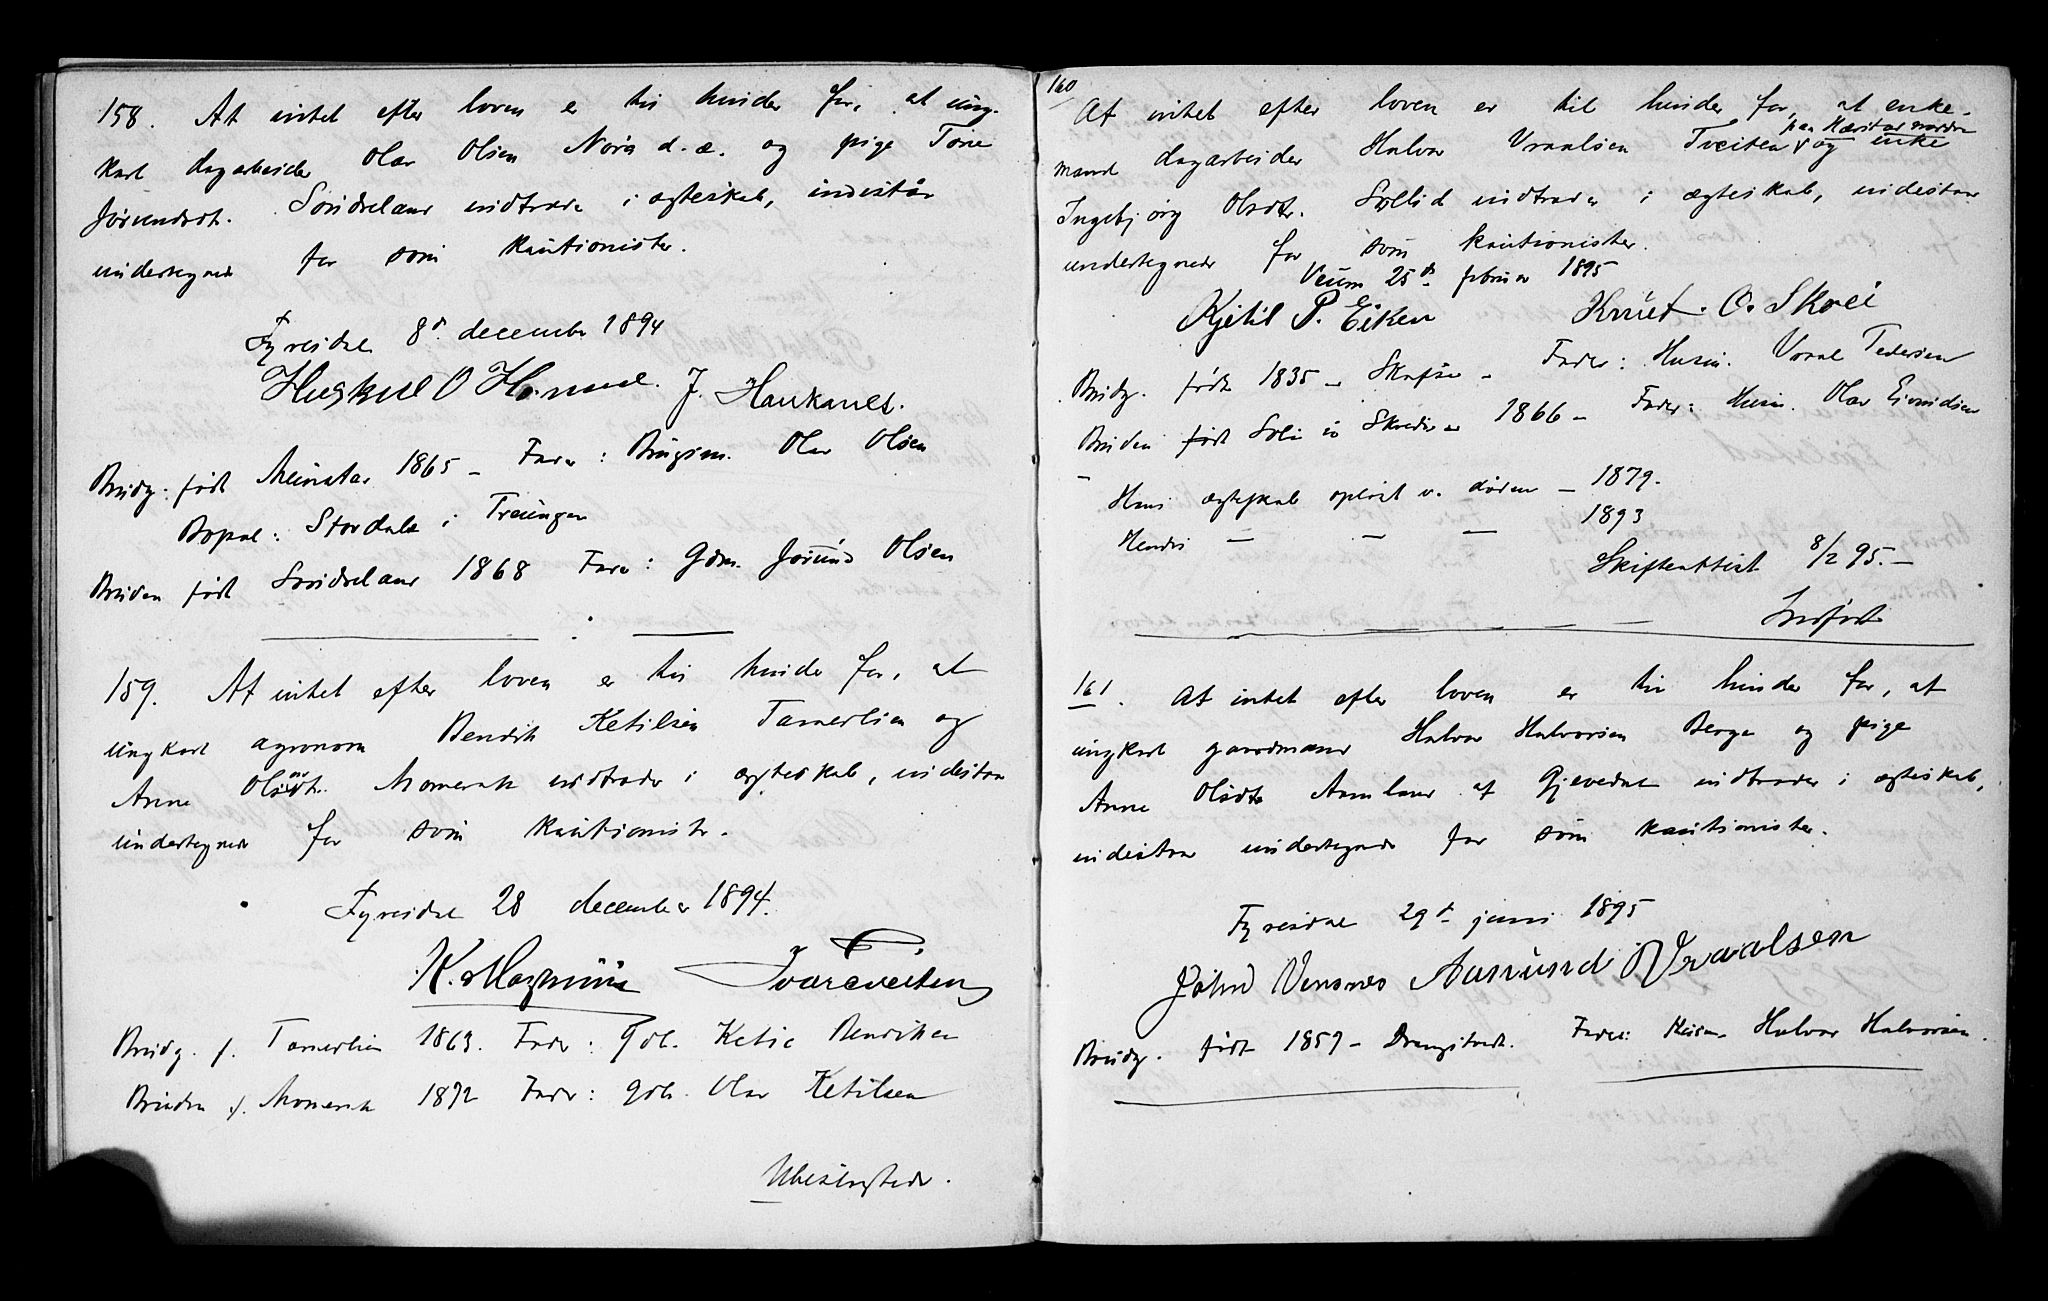 158. At intet efter loven er til hinder for, at ung-
karl dagarbeider Olav Olsen Nøra d.æ. og pige Tone
Jørundsdt. Søndreland indtræder i ægteskab, indestår
undertegnede for som kautionister.
Fyresdal 8de december 1894
J. Haukanes.
Brudg. født 1865 – Fader: Brugsm. Olav Olsen
Bopæl: Stordale i Treungen
Bruden født Søndreland 1868 Fader: Gdm. Jørund Olsen
159. At intet efter loven er til hinder for, at
ungkarl agronom Bendik Ketilsen Tamerlien og
Anne Olavsdt. Momerak indtræder i ægteskab, indestaar
undertegnede for som kautionister.
Fyresdal 28 december 1894.
K. Ivar Tveiten
Brudg. f. Tamerlien 1863. Fader: gdb. Ketil Bendiksen
Bruden f. Momerak 1872 Fader: gdb. Olav Ketilsen
160
At intet efter loven er til hinder for, at enke-
mand dagarbeider Halvor Vraalsen Tveiten og enke
Ingebjørg Olsdtr. Sollid indtræder i ægteskab, indestaar
undertegnede for som kautionister.
Veum 25de februar 1895
Kjetil P. Eiken Knut O. Skrei
Brudg. født 1835 – Skafse – Fader: Husm. Vraal Pedersen
Bruden født 1866 – Fader: Husm. Olav Eivindsen
– Hans ægteskab opløst v. døden – 1879.
Hendes – – – 1893
Skifteattest 8/2 95. –
Indført
161. At intet efter loven er til hinder for, at
ungkarl gaardmand Halvor Halvorsen Berge og pige
Anne Olsdtr Aamland af Gjevedal indtræder i ægteskab,
indestaar undertegnede for som kautionister.
Fyresdal 29de juni 1895
John Vensnes Aanund Vraalsen
Brudg. født 1859 – Drangstvedt. Fader: Halvor Halvorsen.